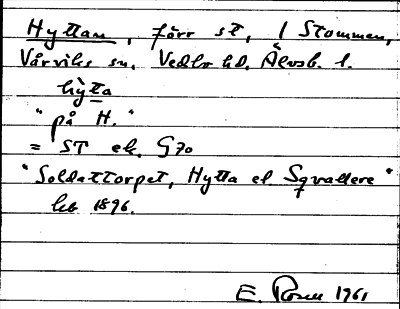 Hyttan, förr st, / Stommen,
Vårviks sn. Vedbo hd. Älvsb. l.
hyta
"på H."
= ST ek. G70
"Soldattorpet, Hytta el Sqvallere"
leb 1896.
E. Rosen 1961